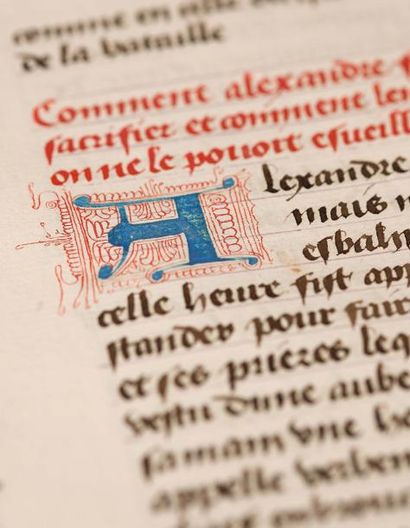 de la bataille
Comment alexandre
sacrifier et comment
on ne le povoit esueill
Alexandre
mais
esbah
celle heure fist app
standez pour fair
et ses prieres leq
vestu dune aube
sa main vne
appelle verben